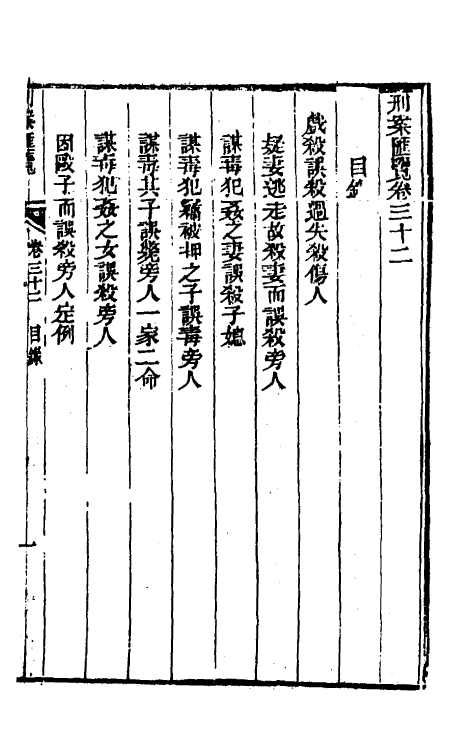 刑案匯覽卷三十二
目錄
戲殺誤殺過失殺傷人
疑妻逃走故殺妻而誤殺旁人
謀毒犯姦之妻誤殺子媳
謀毒犯竊被押之子誤毒旁人
謀毒其子誤斃旁人一家二命
謀毒犯姦之女誤殺旁人
因毆子而誤殺旁人定例
刑案匯覽
卷三十二 目錄
一